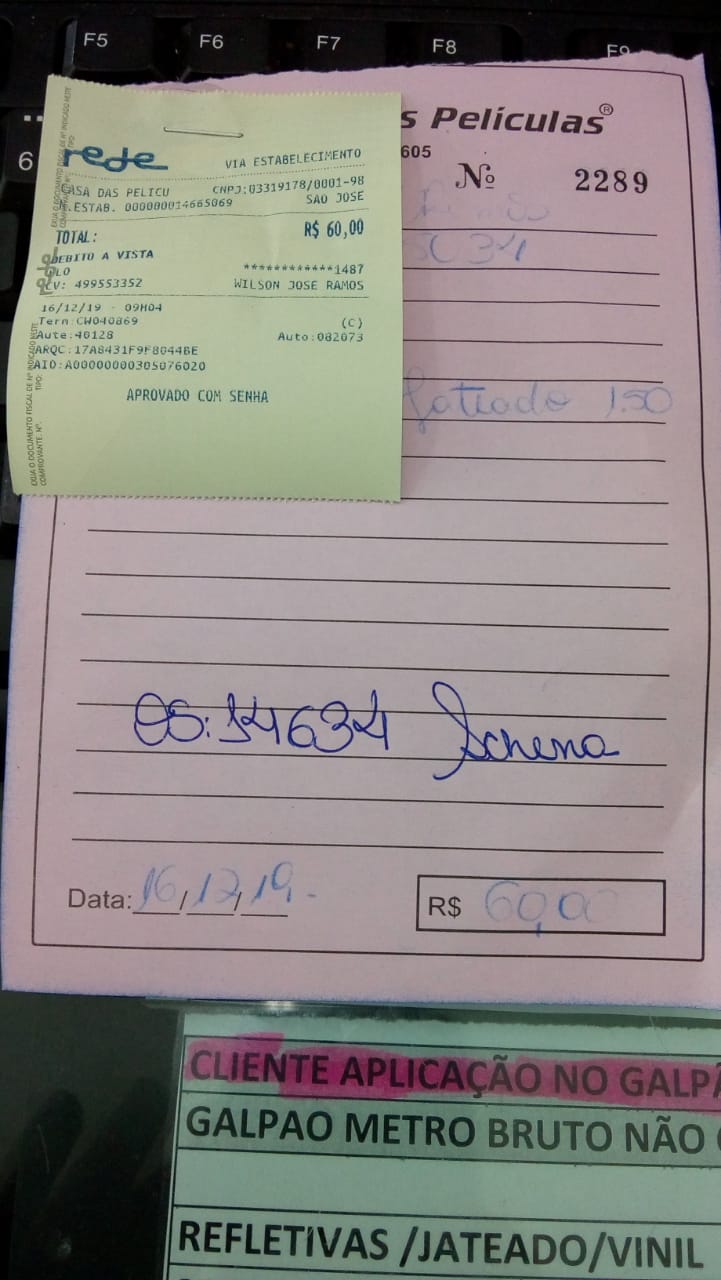 F5 F6 F7 F8 F9
6
s Películas®
605
Nº 2289
5034
Jateado 1.50
rede
VIA ESTABELECIMENTO
CASA DAS PELICU CNPJ:03319178/0001-98
.ESTAB. 000000014665069 SAO JOSE
TOTAL: R$ 60,00
DEBITO A VISTA
LO ************1487
CV: 499553352 WILSON JOSE RAMOS
16/12/19 - 09H04
Term:CW040869 (C)
Aute:40128 Auto:082073
ARQC:17A8431F9F8044BE
AID:A0000000305076020
APROVADO COM SENHA
OS: 14634 Schena
Data: 16/12/19.
R$ 60,00
CLIENTE APLICAÇÃO NO GALPÃ
GALPAO METRO BRUTO NÃO
REFLETIVAS /JATEADO/VINIL